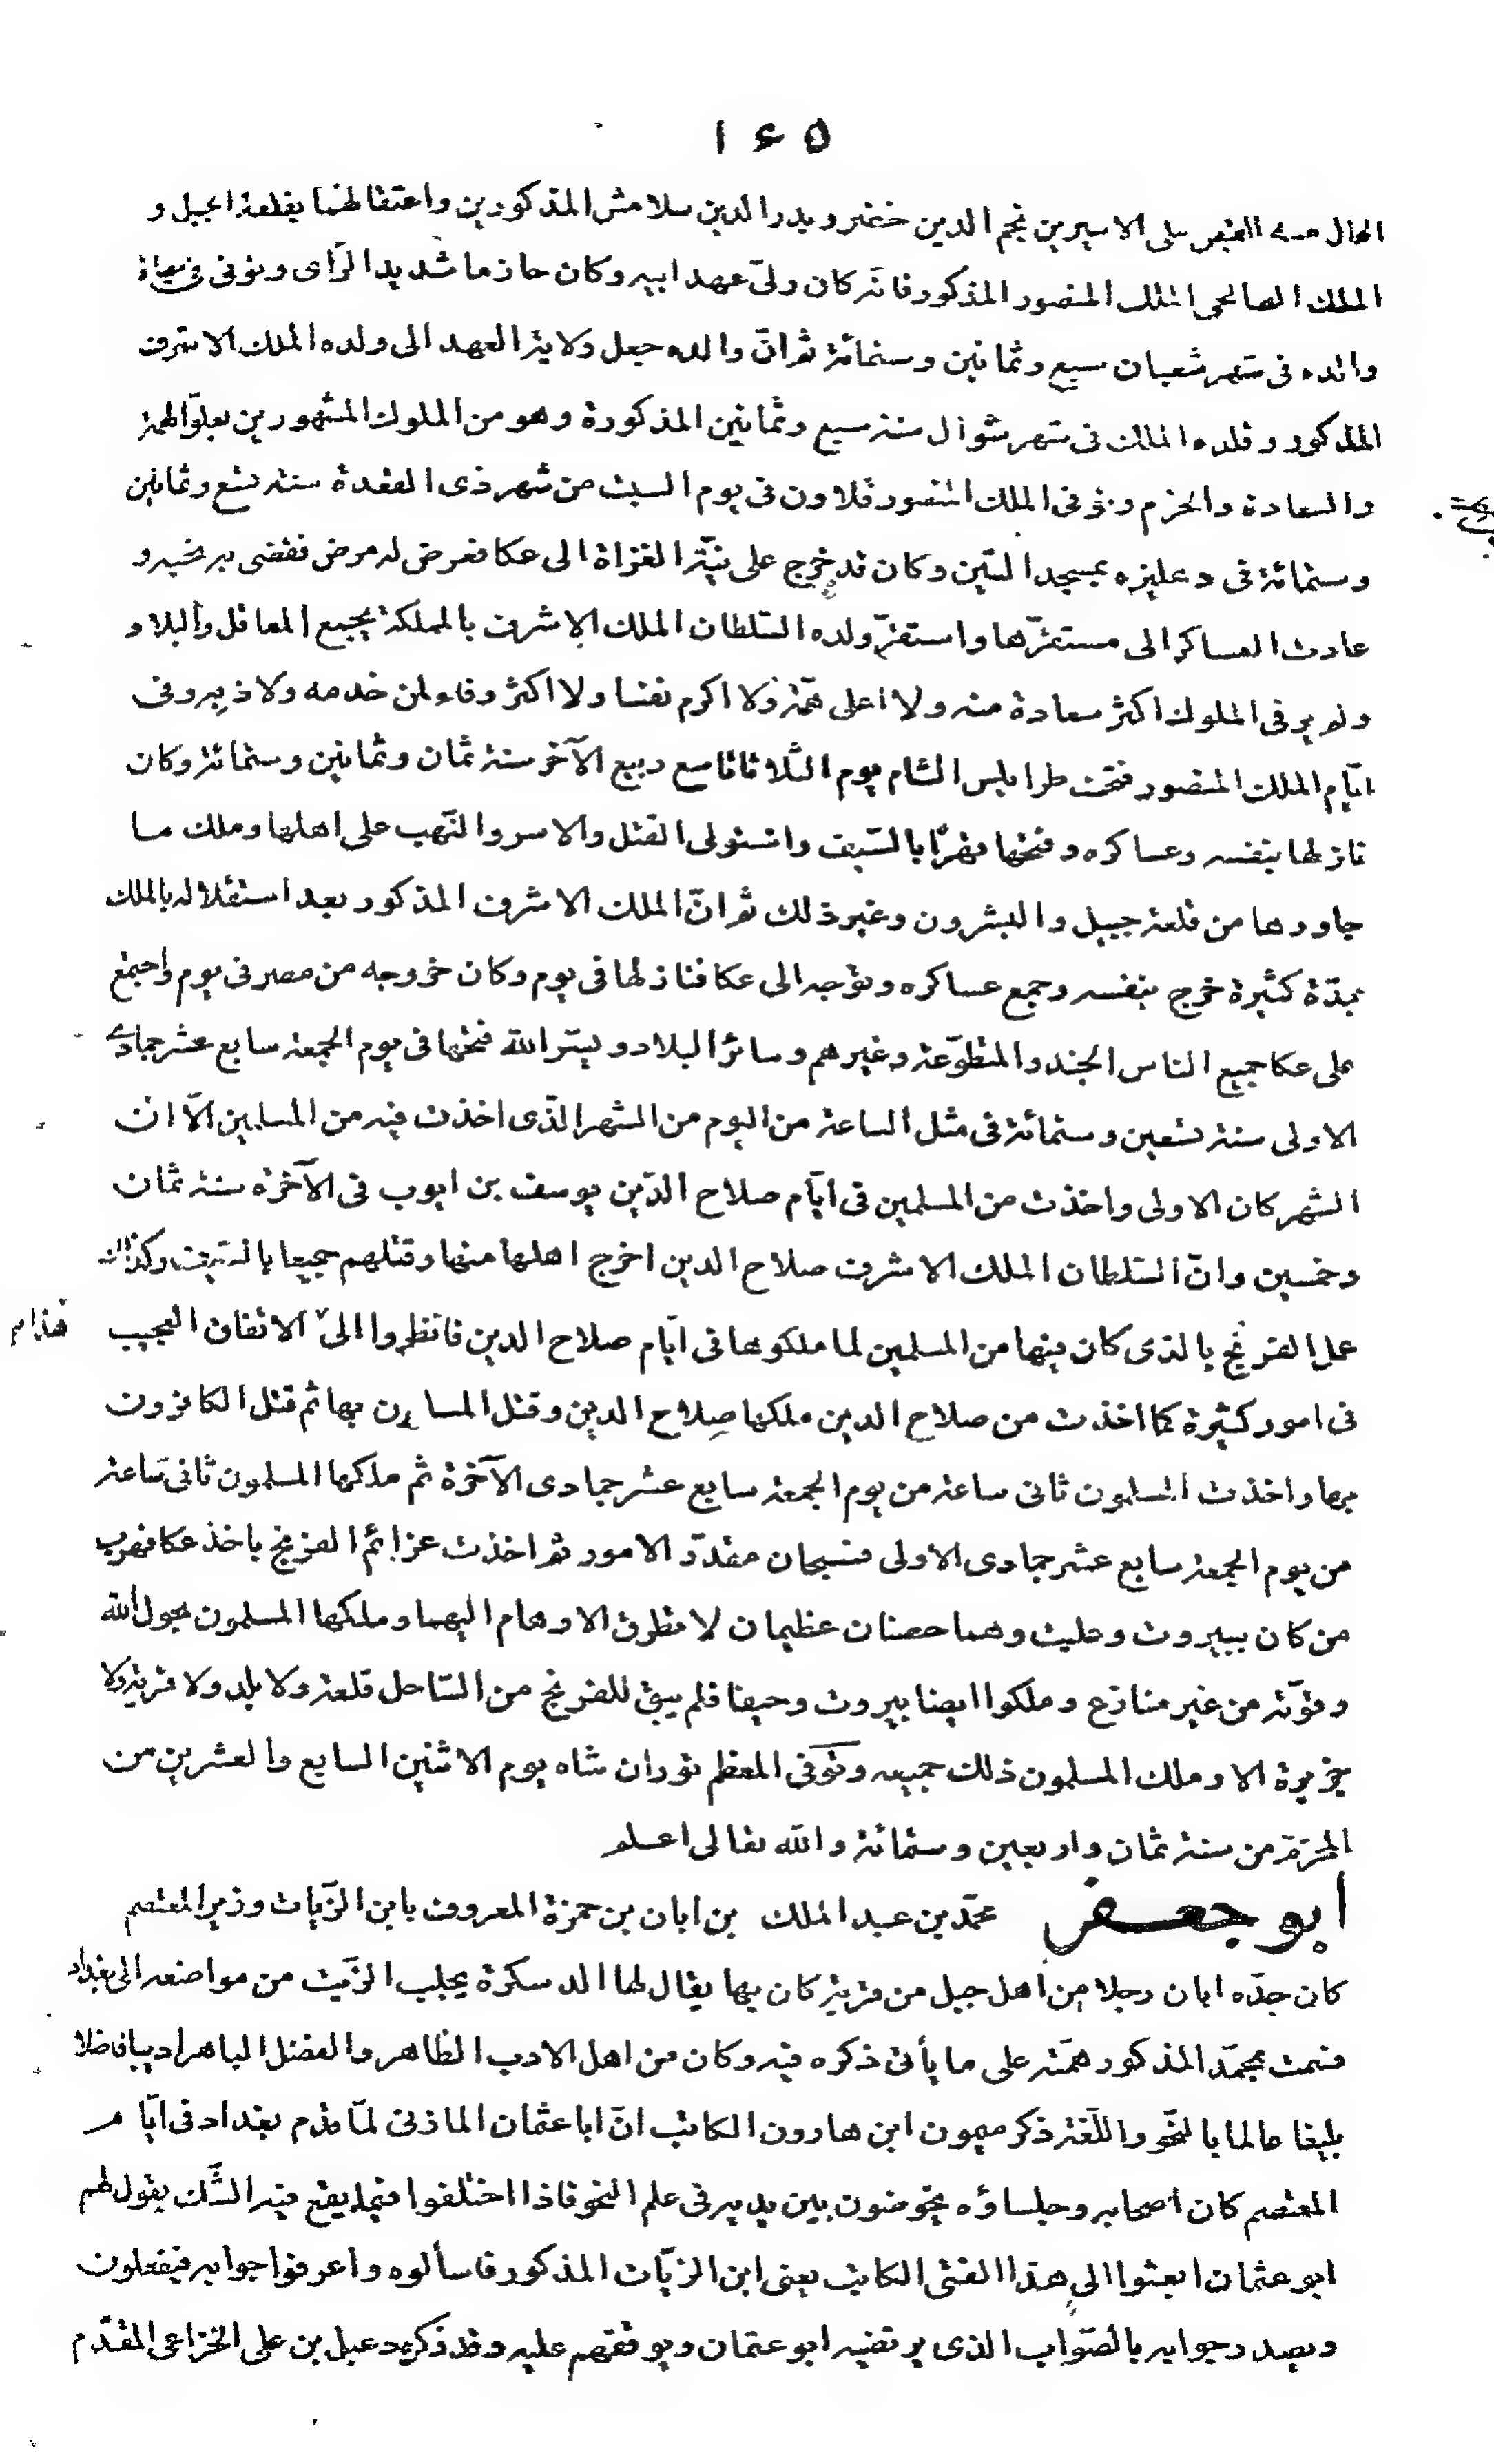 ١٤٥
الحال على الاميرين نجم الدين خضر وبدر الدين سلامش المذكورين واعتقالهما بقلعة الجبل و
الملك الصالحى الملك المنصور المذكور فانّه كان ولىّ عهد ابيه وكان حازما شديد الرّاى وتوفى فى حياة
والده فى شهر شعبان سبع وثمانين وستمائة ثم انّ والده جعل ولاية العهد الى ولده الملك الاشرف
المذكور وقلده الملك فى شهر شوال سنة سبع وثمانين المذكورة وهو من الملوك المشهورين بعلوّ الهمة
والسعادة والحزم وتوفى الملك المنصور قلاون فى يوم السبت من شهر ذى القعدة سنة تسع وثمانين
وستمائة فى دهليزه بمسجد التين وكان قد خرج على نيّة الغزاة الى عكا فعرض له مرض فقضى به نحبه و
عادت العساكر الى مستقرّها واستقرّ ولده السّلطان الملك الاشرف بالمملكة بجميع المعاقل والبلاد و
ولم ير فى الملوك اكثر سعادة منه ولا اعلى همّة ولا اكرم نفسا ولا اكثر وفاء لمن خدمه ولاذ به وفى
ايّام الملك المنصور فتحت طرابلس الشام يوم الثلاثا تاسع ربيع الآخر سنة ثمان وثمانين وستمائة وكان
نازلها بنفسه وعساكره وفتحها قهرًا بالسّيف واستولى القتل والاسر والنّهب على اهلها وملك ما
جاورها من قلعة جبيل والبترون وغير ذلك ثم انّ الملك الاشرف المذكور بعد استقلاله بالملك
بمدّة كثيرة خرج بنفسه وجمع عساكره وتوجه الى عكا فنازلها فى يوم وكان خروجه من مصر فى يوم واجتمع
على عكا جميع الناس الجند والمتطوّعة وغيرهم وسائر البلاد ويسّر الله فتحها فى يوم الجمعة سابع عشر جمادى
الاولى سنة تسعين وستمائة فى مثل الساعة من اليوم من الشهر الّذى اخذت فيه من المسلمين الّا ان
الشهر كان الاولى واخذت من المسلمين فى ايّام صلاح الدّين يوسف بن ايوب فى الآخرة سنة ثمان
وخمسين وانّ السّلطان الملك الاشرف صلاح الدين اخرج اهلها منها وقتلهم جميعا بالسّيف وكذلك
عمل الفرنج بالذى كان فيها من المسلمين لما ملكوها فى ايّام صلاح الدين فانظروا الى الاتفاق العجيب
فى امور كثيرة كما اخذت من صلاح الدين ملكها صلاح الدين وقتل المسلمين بها ثم قتل الكافرون
بها واخذت المسلمون ثانى ساعة من يوم الجمعة سابع عشر جمادى الآخرة ثم ملكها المسلمون ثانى ساعة
من يوم الجمعة سابع عشر جمادى الاولى فسبحان مقدّر الامور ثم اخذت عزائم الفرنج باخذ عكا فهرب
من كان ببيروت وعليث وهما حصنان عظيمان لا تطرق الاوهام اليهما وملكها المسلمون بحول الله
وقوّته من غير منازع وملكوا ايضا بيروت وحيفا فلم يبق للفرنج من السّاحل قلعة ولا بلد ولا قرية ولا
جزيرة الا وملك المسلمون ذلك جميعه وتوفى المعظم توران شاه يوم الاثنين السابع والعشرين من
المحرّم من سنة ثمان واربعين وستمائة والله تعالى اعلم
ابو جعفر محمّد بن عبد الملك بن ابان بن حمزة المعروف بابن الزّيات وزير المعتصم
كان جدّه ابان رجلا من اهل جبل من قرية كان بها يقال لها الدسكرة يجلب الزّيت من مواضعه الى بغداد
فنمت بمحمّد المذكور همّته على ما يأتى ذكره فيه وكان من اهل الادب الظاهر والفضل الباهر اديبا فاضلا
بليغا عالما بالنّحو واللّغة ذكر ميمون ابن هارون الكاتب انّ ابا عثمان المازنى لمّا قدم بغداد فى ايّام
المعتصم كان اصحابه وجلساؤه يخوضون بين يديه فى علم النحو فاذا اختلفوا فيما يقع فيه الشّك يقول لهم
ابو عثمان ابعثوا الى هذا الفتى الكاتب يعنى ابن الزيّات المذكور فاسألوه واعرفوا جوابه فيفعلون
ويصدر جوابه بالصّواب الذى يرتضيه ابو عثمان ويوقفهم عليه وقد ذكره دعبل بن على الخزاعى المقدّم